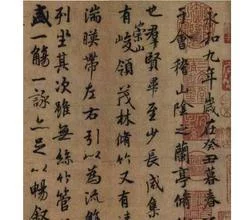 永和九年歲在癸丑暮春
于會稽山陰之蘭亭脩
也群賢畢至少長咸集
有崇山峻領茂林脩竹又有清
湍暎帶左右引以為流
列坐其次雖無絲竹管
盛一觴一詠亦足以暢敘